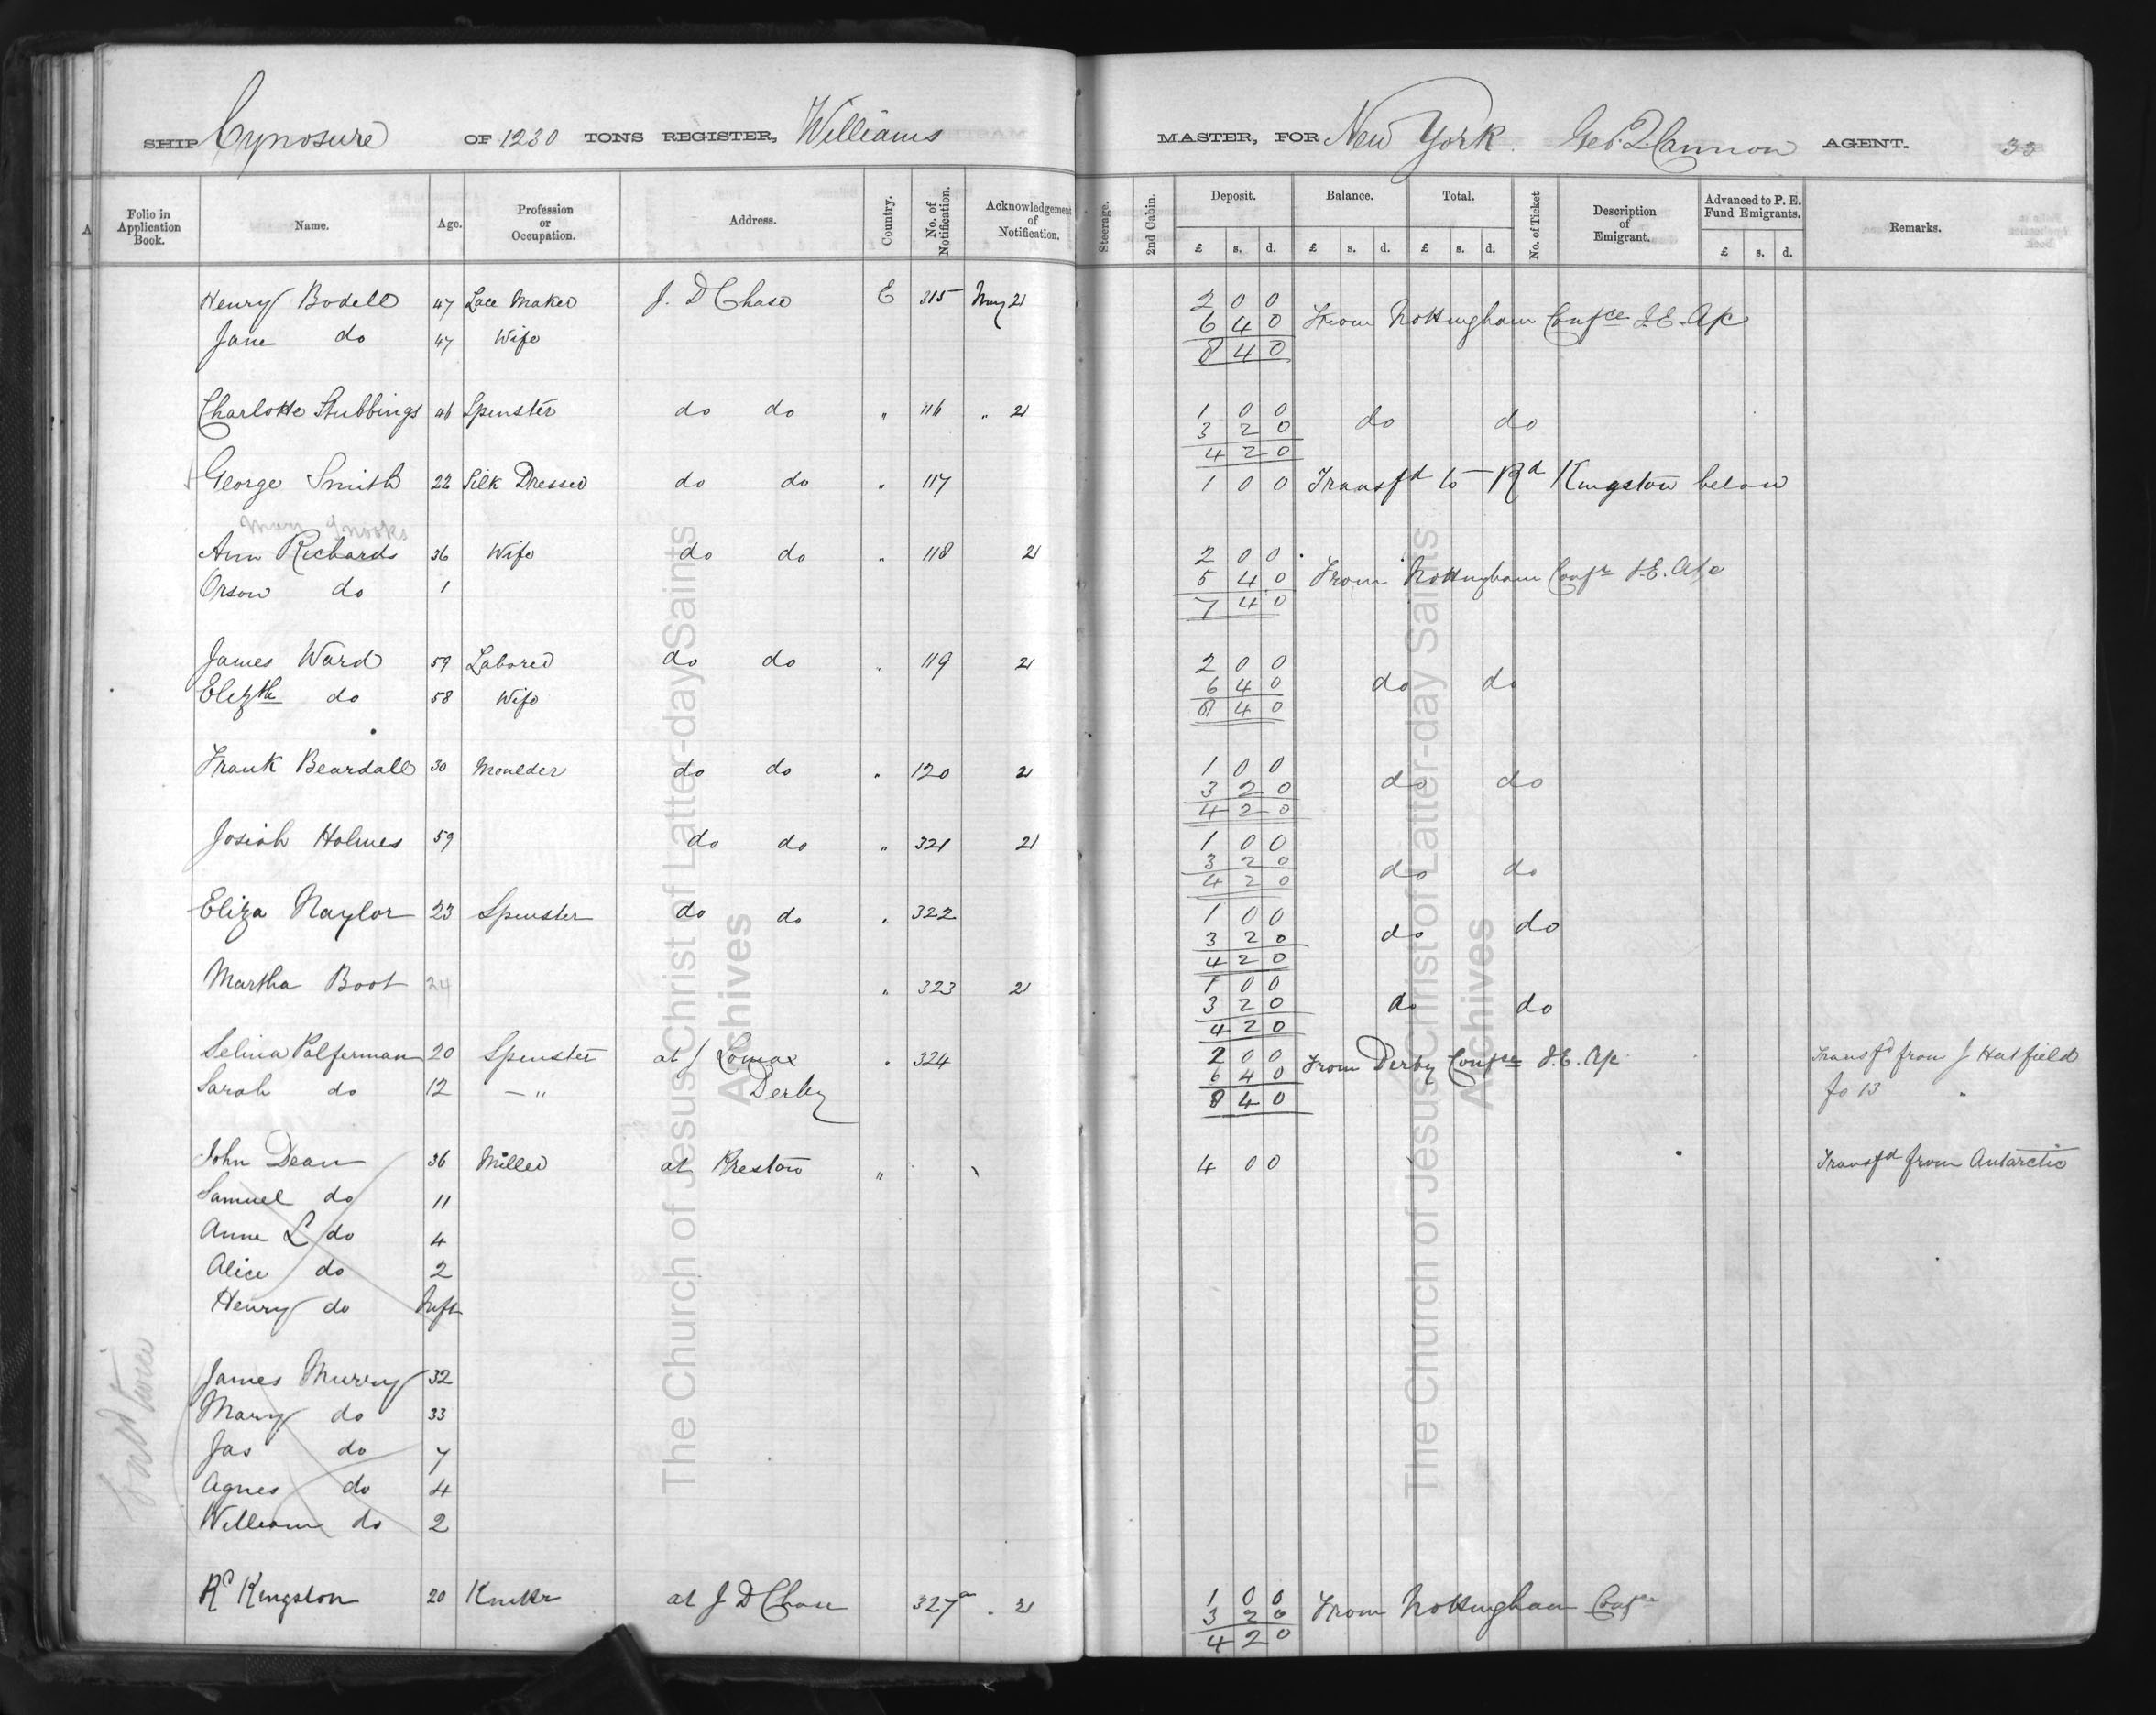 SHIP Cynosure OF 1230 TONS REGISTER, Williams MASTER, FOR New York. Geo. Q. Cannon AGENT. 33
A Folio in Application Book. Name. Age. Profession or Occupation. Address. Country. No. of Notification. Acknowledgement of Notification. Steerage. 2nd Cabin. Deposit. Balance. Total. No. of Ticket Description of Emigrant. Advanced to P. E. Fund Emigrants. Remarks.
£ s. d. £ s. d. £ s. d. £ s. d.
Henry Bodell 47 Lace Maker J. D Chase E 315 May 21 2 0 0
6 4 0 From Nottingham Confce I.E. A/c
Jane do 47 Wife 8 4 0
Charlotte Stubbings 46 Spinster do do " 116 " 21 1 0 0
3 2 0 do do
4 2 0
George Smith 22 Silk Dresser do do " 117 1 0 0 Transfd to Rd Kingston below
Mary Snooks
Ann Richards 36 Wife do do " 118 21 2 0 0
5 4 0 From Nottingham Confce I.E. A/c
Orson do 1 7 4 0
James Ward 59 Laborer do do " 119 21 2 0 0
6 4 0 do do
Elizth do 58 Wife 8 4 0
Frank Beardall 30 Moulder do do " 120 21 1 0 0
3 2 0 do do
4 2 0
Josiah Holmes 59 do do " 321 21 1 0 0
3 2 0 do do
4 2 0
Eliza Naylor 23 Spinster do do " 322 1 0 0
3 2 0 do do
4 2 0
Martha Boot 24 " 323 21 1 0 0
3 2 0 do do
4 2 0
Selina Palferman 20 Spinster at J Lomax " 324 2 0 0 From Derby Confce I.E. A/c Transfd from J Hatfield
6 4 0
Sarah do 12 — " Derby 8 4 0 fo 13 "
John Dean 36 Miller at Preston " 4 0 0 Transfd from Antarctic
Samuel do 11
Anne L do 4
Alice do 2
Henry do Inft
James Murray 32
Mary do 33
Jas do 7
Agnes do 4
William do 2
Rd Kingston 20 at J D Chase 327a " 21 1 0 0
3 2 0 From Nottingham Confce
4 2 0
The Church of Jesus Christ of Latter-day Saints
Archives
The Church of Jesus Christ of Latter-day Saints
Archives